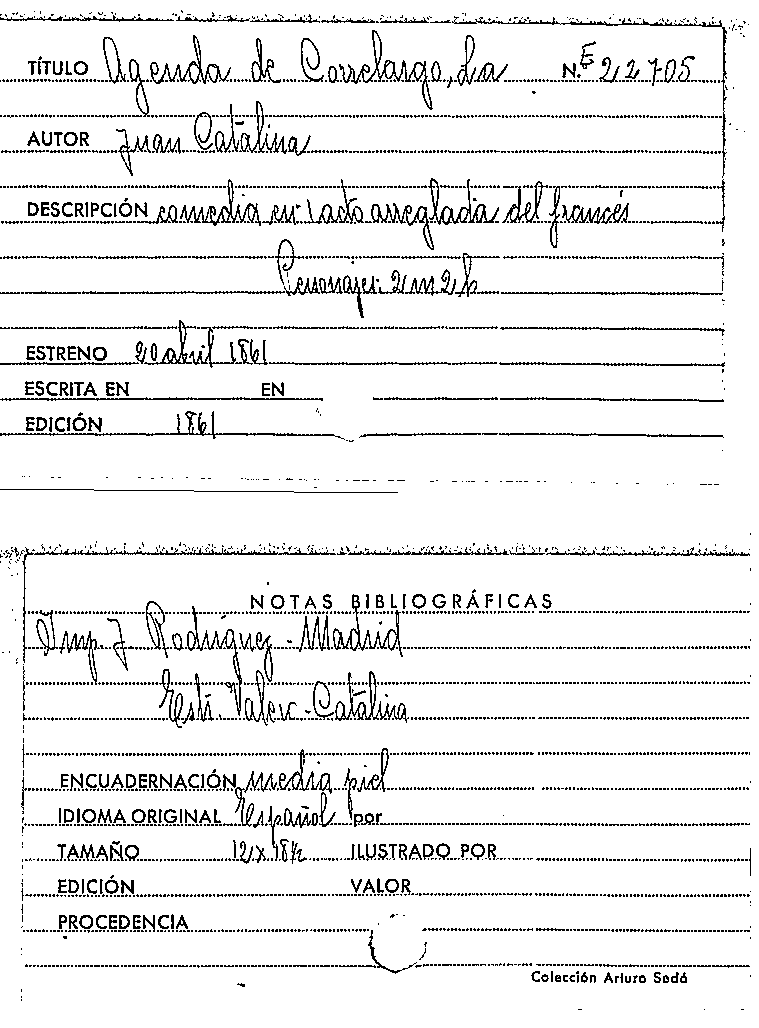 TÍTULO Agenda de Correlargo, La N.E 22705
AUTOR Juan Catalina
DESCRIPCIÓN comedia en 1 acto arreglada del francés
Personajes: 2 m 2 h
ESTRENO 20 abril 1861
ESCRITA EN EN
EDICIÓN 1861
NOTAS BIBLIOGRÁFICAS
Imp. J. Rodríguez - Madrid
Estr. Valero - Catalina
ENCUADERNACIÓN media piel
IDIOMA ORIGINAL Español por
TAMAÑO 12 x 18½ ILUSTRADO POR
EDICIÓN VALOR
PROCEDENCIA
Colección Arturo Sedó